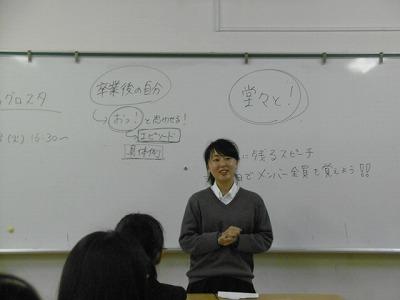 卒業後の自分
おっ!と思わせる!
エピソード
具体例
グロスタ
(火) 16:30〜
堂々と!
に残るスピーチ
でメンバー全員を覚えよう!!